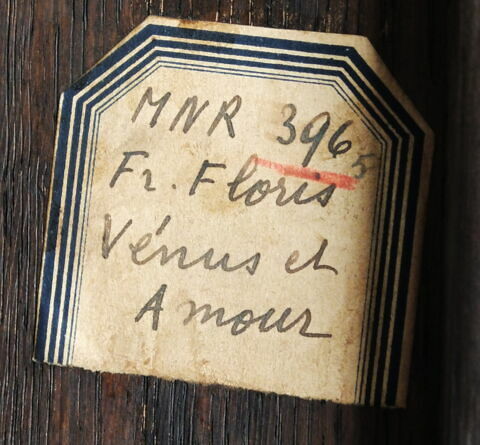 MNR 3965
Fr. Floris
Vénus et
Amour